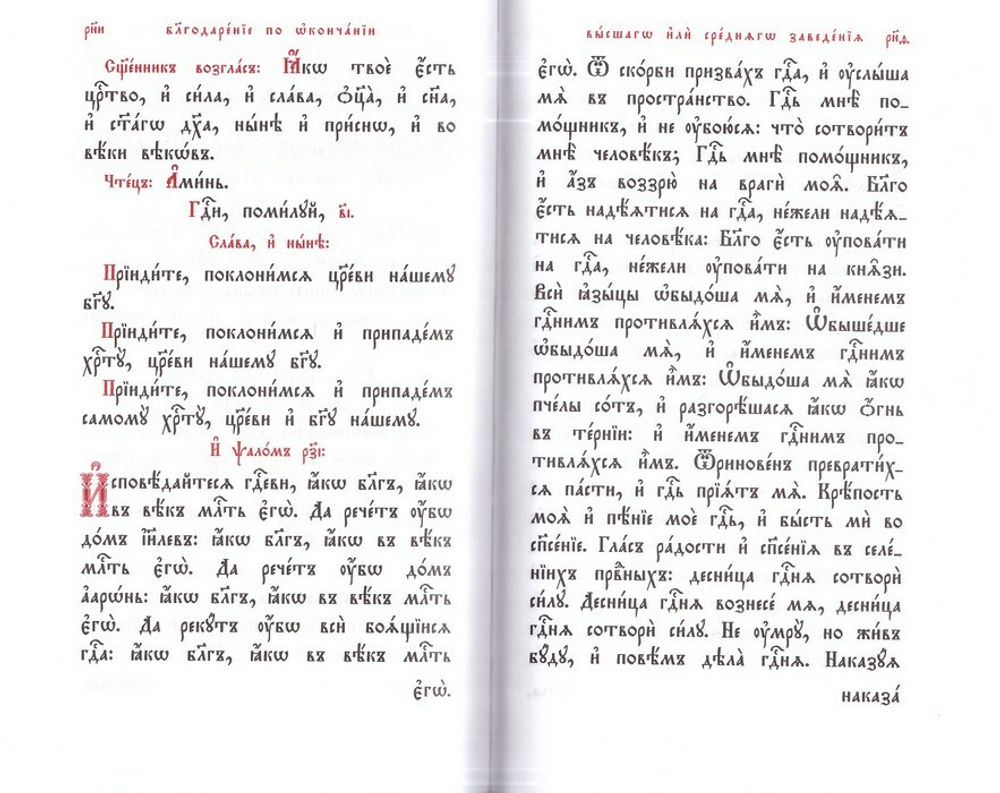 рн҃и благодаре́нїе по ѡ҆конча́нїи
Сщ҃е́нникъ возгла́съ: Ꙗ҆́кѡ твоѐ є҆́сть
црⷭ҇тво, и҆ си́ла, и҆ сла́ва, ѻ҆ц҃а̀, и҆ сн҃а,
и҆ ст҃а́гѡ дх҃а, ны́нѣ и҆ при́снѡ, и҆ во
вѣ́ки вѣкѡ́въ.
Чте́цъ: А҆ми́нь.
Гдⷭ҇и, поми́лꙋй, в҃і.
Сла́ва, и҆ ны́нѣ:
Прїиди́те, поклони́мсѧ цр҃е́ви на́шемꙋ
бг҃ꙋ.
Прїиди́те, поклони́мсѧ и҆ припаде́мъ
хрⷭ҇тꙋ̀, цр҃е́ви на́шемꙋ бг҃ꙋ.
Прїиди́те, поклони́мсѧ и҆ припаде́мъ
самомꙋ̀ хрⷭ҇тꙋ̀, цр҃е́ви и҆ бг҃ꙋ на́шемꙋ.
И҆ ѱало́мъ рз҃і:
И҆сповѣ́дайтесѧ гдⷭ҇еви, ꙗ҆́кѡ бл҃гъ, ꙗ҆́кѡ
въ вѣ́къ млⷭ҇ть є҆гѡ̀. Да рече́тъ ᲂу҆́бѡ
до́мъ і҆и҃левъ: ꙗ҆́кѡ бл҃гъ, ꙗ҆́кѡ въ вѣ́къ
млⷭ҇ть є҆гѡ̀. Да рече́тъ ᲂу҆́бѡ до́мъ
а҆арѡ́нь: ꙗ҆́кѡ бл҃гъ, ꙗ҆́кѡ въ вѣ́къ млⷭ҇ть
є҆гѡ̀. Да рекꙋ́тъ ᲂу҆́бѡ всѝ боѧ́щїисѧ
гдⷭ҇а: ꙗ҆́кѡ бл҃гъ, ꙗ҆́кѡ въ вѣ́къ млⷭ҇ть
є҆гѡ̀.
вы́сшагѡ и҆лѝ сре́днѧгѡ заведе́нїѧ рн҃ѳ.
є҆гѡ̀. Ѿ ско́рби призва́хъ гдⷭ҇а, и҆ ᲂу҆слы́ша
мѧ̀ въ простра́нство. Гдⷭ҇ь мнѣ̀ по_
мо́щникъ, и҆ не ᲂу҆бою́сѧ: что̀ сотвори́тъ
мнѣ̀ человѣ́къ; Гдⷭ҇ь мнѣ̀ помо́щникъ,
и҆ а҆́зъ воззрю̀ на врагѝ моѧ̑. Бл҃го
є҆́сть надѣ́ѧтисѧ на гдⷭ҇а, не́жели надѣ́ѧ_
тисѧ на человѣ́ка: Бл҃го є҆́сть ᲂу҆пова́ти
на гдⷭ҇а, не́жели ᲂу҆пова́ти на кнѧ̑зи.
Всѝ ꙗ҆зы́цы ѡ҆быдо́ша мѧ̀, и҆ и҆́менемъ
гдⷭ҇нимъ противлѧ́хсѧ и҆̀мъ: Ѡ҆быше́дше
ѡ҆быдо́ша мѧ̀, и҆ и҆́менемъ гдⷭ҇нимъ
противлѧ́хсѧ и҆̀мъ: Ѡ҆быдо́ша мѧ̀ ꙗ҆́кѡ
пче́лы со́тъ, и҆ разгорѣ́шасѧ ꙗ҆́кѡ ѻ҆́гнь
въ те́рнїи: и҆ и҆́менемъ гдⷭ҇нимъ про_
тивлѧ́хсѧ и҆̀мъ. Ѿринове́нъ преврати́х_
сѧ па́сти, и҆ гдⷭ҇ь прїѧ́тъ мѧ̀. Крѣ́пость
моѧ̀ и҆ пѣ́нїе моѐ гдⷭ҇ь, и҆ бы́сть мѝ во
сп҃се́нїе. Гла́съ ра́дости и҆ сп҃се́нїѧ въ селе́_
нїихъ првⷣныхъ: десни́ца гдⷭ҇нѧ сотворѝ
си́лꙋ. Десни́ца гдⷭ҇нѧ вознесе́ мѧ, десни́ца
гдⷭ҇нѧ сотворѝ си́лꙋ. Не ᲂу҆мрꙋ̀, но жи́въ
бꙋ́дꙋ, и҆ повѣ́мъ дѣла̀ гдⷭ҇нѧ. Наказꙋ́ѧ
наказа́